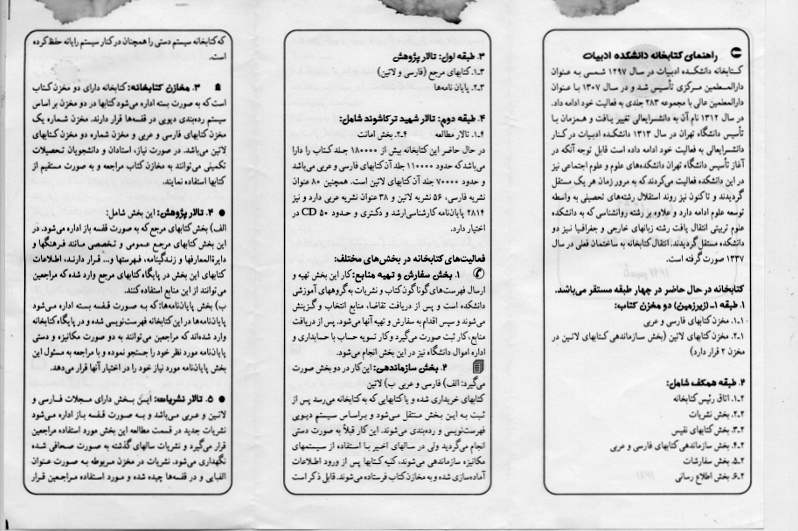 راهنمای کتابخانه دانشکده ادبیات
کتابخانه دانشکده ادبیات در سال ۱۲۹۷ شمسی به عنوان
دارالمعلمین مرکزی تأسیس شد و در سال ۱۳۰۷ با عنوان
دارالمعلمین عالی با مجموعه ۲۸۳ جلدی به فعالیت خود ادامه داد.
در سال ۱۳۱۲ نام آن به دانشسرایعالی تغییر یافت و همزمان با
تأسیس دانشگاه تهران در سال ۱۳۱۳ دانشکده ادبیات در کنار
دانشسرایعالی به فعالیت خود ادامه داده است قابل توجه آنکه در
آغاز تأسیس دانشگاه تهران دانشکده‌های علوم و علوم اجتماعی نیز
در این دانشکده فعالیت می‌کردند که به مرور زمان هر یک مستقل
گردیدند و تاکنون نیز روند استقلال رشته‌های تحصیلی به واسطه
توسعه علوم ادامه دارد و علاوه بر رشته روانشناسی که به دانشکده
علوم تربیتی انتقال یافت رشته زبانهای خارجی و جغرافیا نیز دو
دانشکده مستقل گردیدند. انتقال کتابخانه به ساختمان فعلی در سال
۱۳۳۷ صورت گرفته است.
کتابخانه در حال حاضر در چهار طبقه مستقر می‌باشد.
۱. طبقه ۱ـ (زیرزمین) دو مخزن کتاب:
۱.۱ـ مخزن کتابهای فارسی و عربی
۲.۱ـ مخزن کتابهای لاتین (بخش سازماندهی کتابهای لاتین در
مخزن ۲ قرار دارد)
۲. طبقه همکف شامل:
۱.۲ـ اتاق رئیس کتابخانه
۲.۲ـ بخش نشریات
۳.۲ـ بخش کتابهای نفیس
۴.۲ـ بخش سازماندهی کتابهای فارسی و عربی
۵.۲ـ بخش سفارشات
۶.۲ـ بخش اطلاع رسانی
۳. طبقه اول: تالار پژوهش
۱.۳ـ کتابهای مرجع (فارسی و لاتین)
۲.۳ـ پایان نامه‌ها
۴. طبقه دوم: تالار شهید ترکاشوند شامل:
۱.۴ـ تالار مطالعه ۲.۴ـ بخش امانت
در حال حاضر این کتابخانه بیش از ۱۸۰۰۰۰ جلد کتاب را دارا
می‌باشد که حدود ۱۱۰۰۰۰ جلد آن کتابهای فارسی و عربی می‌باشد
و حدود ۷۰۰۰۰ جلد آن کتابهای لاتین است. همچنین ۸۰ عنوان
نشریه فارسی، ۵۶ نشریه لاتین و ۳۸ عنوان نشریه عربی دارد و نیز
۲۸۱۴ پایان‌نامه کارشناسی‌ارشد و دکتری و حدود ۵۰ CD در
اختیار دارد.
فعالیت‌های کتابخانه در بخش‌های مختلف:
۱. بخش سفارش و تهیه منابع: کار این بخش تهیه و
ارسال فهرست‌های گوناگون کتاب و نشریات به گروههای آموزشی
دانشکده است و پس از دریافت تقاضا، منابع انتخاب و گزینش
می‌شوند و سپس اقدام به سفارش و تهیه آنها می‌شود. پس از دریافت
منابع، کار ثبت صورت می‌گیرد و کار تسویه حساب با حسابداری و
اداره اموال دانشگاه نیز در این بخش انجام می‌شود.
۲. بخش سازماندهی: این کار در دو بخش صورت
می‌گیرد: الف) فارسی و عربی ب) لاتین
کتابهای خریداری شده و یا کتابهایی که به کتابخانه می‌رسد پس از
ثبت به این بخش منتقل می‌شود و براساس سیستم دیویی
فهرست‌نویسی و رده‌بندی می‌شوند. این کار قبلاً به صورت دستی
انجام می‌گردید ولی در سالهای اخیر با استفاده از سیستمهای
مکانیزه سازماندهی می‌شوند، کلیه کتابها پس از ورود اطلاعات
آماده‌سازی شده و به مخازن کتاب فرستاده می‌شوند. قابل ذکر است
که کتابخانه سیستم دستی را همچنان در کنار سیستم رایانه حفظ کرده
است.
۳. مخازن کتابخانه: کتابخانه دارای دو مخزن کتاب
است که به صورت بسته اداره می‌شود کتابها در دو مخزن بر اساس
سیستم رده‌بندی دیویی در قفسه‌ها قرار دارند. مخزن شماره یک
مخزن کتابهای فارسی و عربی و مخزن شماره دو مخزن کتابهای
لاتین می‌باشد. در صورت نیاز، استادان و دانشجویان تحصیلات
تکمیلی می‌توانند به مخازن کتاب مراجعه و به صورت مستقیم از
کتابها استفاده نمایند.
۴. تالار پژوهش: این بخش شامل:
الف) بخش کتابهای مرجع که به صورت قفسه باز اداره می‌شود. در
این بخش کتابهای مرجع عمومی و تخصصی مانند فرهنگها و
دایرةالمعارفها و زندگینامه، فهرستها و... قرار دارند، اطلاعات
کتابهای این بخش در پایگاه کتابهای مرجع وارد شده که مراجعین
می‌توانند از این منابع استفاده کنند.
ب) بخش پایان‌نامه‌ها: که به صورت قفسه بسته اداره می‌شود
پایان‌نامه‌ها در این کتابخانه فهرست‌نویسی شده و در پایگاه کتابخانه
وارد شده‌اند که مراجعین می‌توانند به دو صورت مکانیزه و دستی
پایان‌نامه مورد نظر خود را جستجو نموده و با مراجعه به مسئول این
بخش پایان‌نامه مورد نیاز خود را در اختیار آنها قرار می‌دهد.
۵. تالار نشریات: این بخش دارای مجلات فارسی و
لاتین و عربی می‌باشد و به صورت قفسه باز اداره می‌شود
نشریات جدید در قسمت مطالعه این بخش مورد استفاده مراجعین
قرار می‌گیرد و نشریات سالهای گذشته به صورت صحافی شده
نگهداری می‌شود. نشریات در مخزن مربوطه به صورت عنوان
الفبایی و در قفسه‌ها چیده شده و مورد استفاده مراجعین قرار